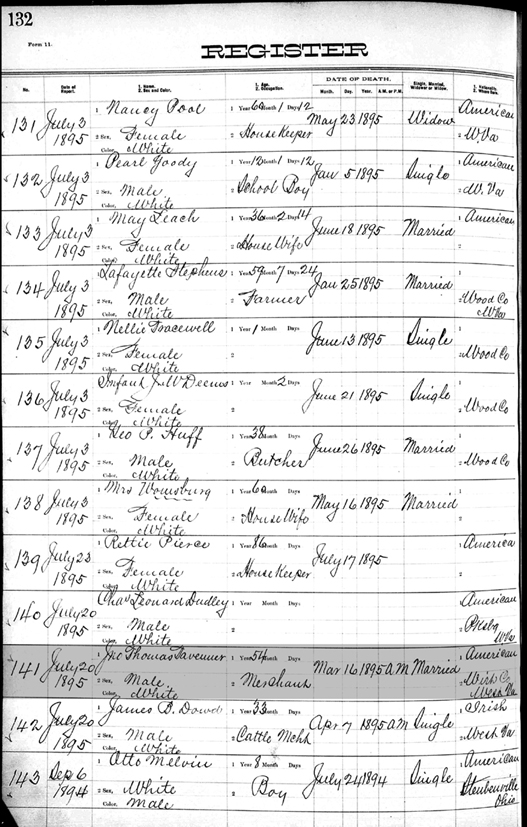 132
Form 11.
REGISTER
No. Date of Report. 1. Name. 2. Sex and Color. 1. Age. 2. Occupation. DATE OF DEATH. Month. Day. Year. A.M. or P.M. Single, Married, Widower or Widow. 1. Nationality. 2. Where Born.
131 July 3 1895 1 Nancy Pool 1 Year 60 Month 1 Days 12 May 23 1895 Widow 1 American
2 Sex, Female 2 House Keeper 2 W Va
Color, White
132 July 3 1895 1 Pearl Goody 1 Year 12 Month 1 Days 12 Jan 5 1895 Single 1 American
2 Sex, Male 2 School Boy 2 W. Va
Color, White
133 July 3 1895 1 May Leach 1 Year 36 Month 2 Days 14 June 18 1895 Married 1 American
2 Sex, Female 2 House Wife 2
Color, White
134 July 3 1895 1 Lafayette Stephens 1 Year 59 Month 7 Days 24 Jan 25 1895 Married 1
2 Sex, Male 2 Farmer 2 Wood Co W Va
Color, White
135 July 3 1895 1 Nellie Tracewell 1 Year 1 Month Days June 13 1895 Single 1
2 Sex, Female 2 2 Wood Co
Color, White
136 July 3 1895 1 Infant J. W Deems 1 Year Month 2 Days June 21 1895 Single 1
2 Sex, Female 2 2 Wood Co
Color, White
137 July 3 1895 1 Geo P. Huff 1 Year 38 Month Days June 26 1895 Married 1
2 Sex, Male 2 Butcher 2 Wood Co
Color, White
138 July 3 1895 1 Mrs 1 Year 60 Month Days May 16 1895 Married 1
2 Sex, Female 2 House Wife 2
Color, White
139 July 23 1895 1 Rettie Pierce 1 Year 86 Month Days July 17 1895 1 America
2 Sex, Female 2 House Keeper 2
Color, White
140 July 20 1895 1 Chas Leonard Dudley 1 Year Month Days 1 American
2 Sex, Male 2 2 Pksbg W Va
Color, White
141 July 20 1895 1 Jno Thomas Tavenner 1 Year 54 Month Days Mar 16 1895 A M Married 1 American
2 Sex, Male 2 Merchant 2 Wirt Co West Va
Color, White
142 July 20 1895 1 James B. Dowd 1 Year 33 Month Days Apr 7 1895 A M Single 1 Irish
2 Sex, Male 2 Cattle Mcht 2 West Va
Color, White
143 Sep 6 1894 1 Otto Melvin 1 Year 8 Month Days July 24 1894 Single 1 American
2 Sex, White 2 Boy 2 Steubenville Ohio
Color, Male